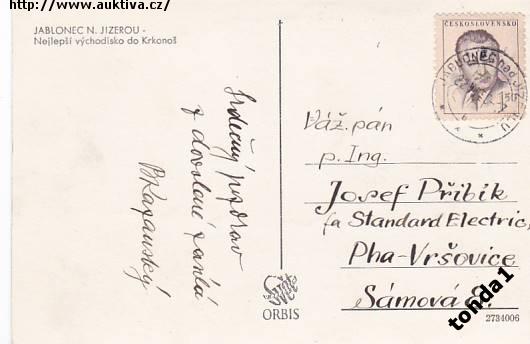 http://www.auktiva.cz/
JABLONEC N. JIZEROU -
Nejlepší východisko do Krkonoš
ČESKOSLOVENSKO
JABLONEC nad JIZ.
Srdečný pozdrav
z dovolené zasílá
Váž. pán
p. Ing.
Josef Přibik
fa Standard Electric,
Pha-Vršovice
Sámová 8.
ORBIS
2734006
tonda1